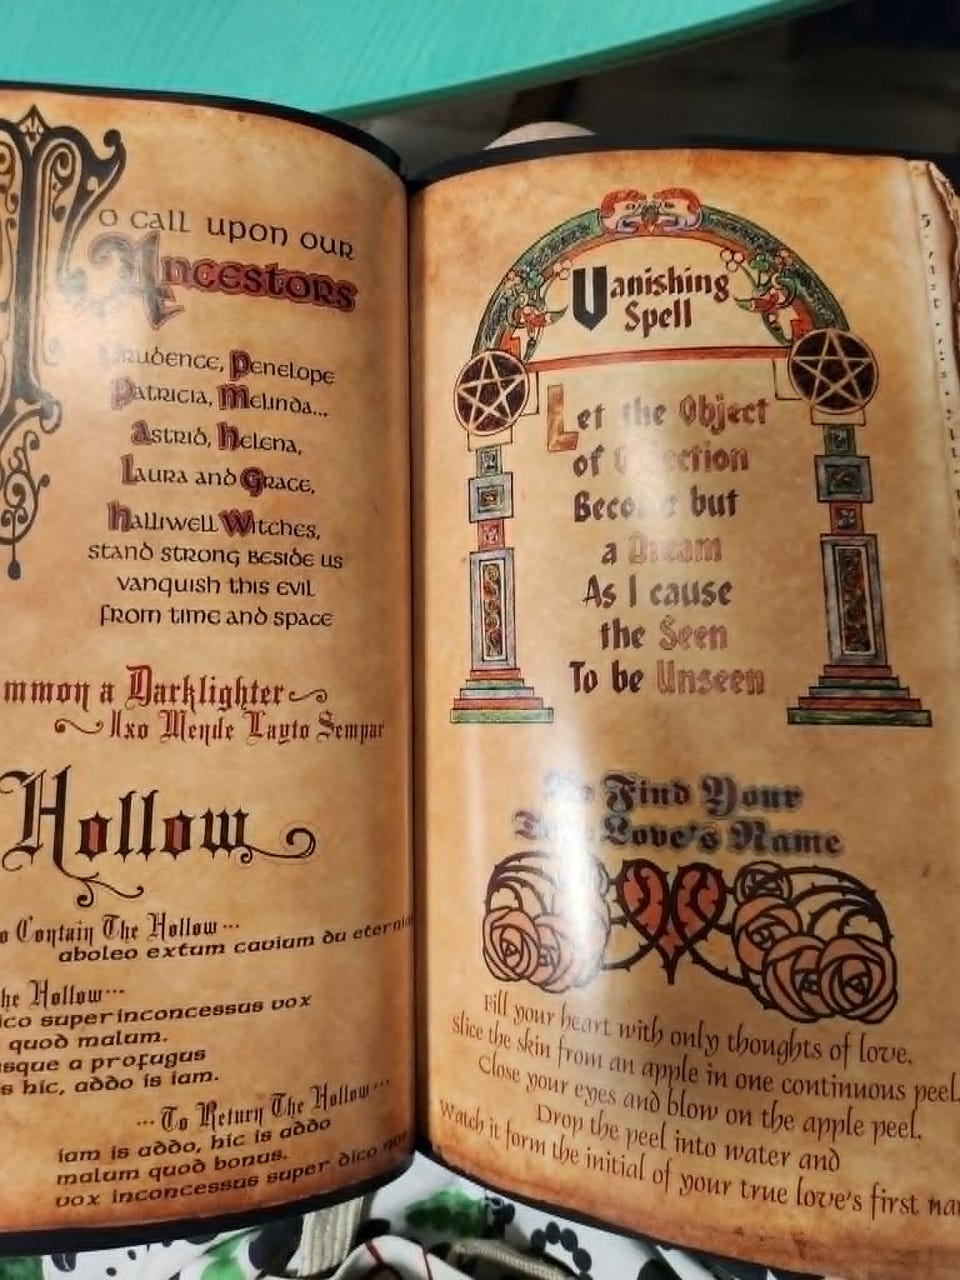 To call upon our
Ancestors
Prudence, Penelope
Patricia, Melinda...
Astrid, Helena,
Laura and Grace,
Halliwell Witches,
stand strong beside us
vanquish this evil
from time and space
mmon a Darklighter
Nxo Mende Layto Sempar
Hollow
o Contain The Hollow...
aboleo extum cavium du eterni
he Hollow...
ico super inconcessus vox
quod malum.
sque a profugus
s hic, addo is iam.
...To Return The Hollow...
iam is addo, hic is addo
malum quod bonus.
vox inconcessus super dico no
Vanishing
Spell
Let the Object
of Objection
Become but
a Dream
As I cause
the Seen
To be Unseen
To Find Your
True Love's Name
Fill your heart with only thoughts of love.
Slice the skin from an apple in one continuous peel.
Close your eyes and blow on the apple peel.
Drop the peel into water and
Watch it form the initial of your true love's first na